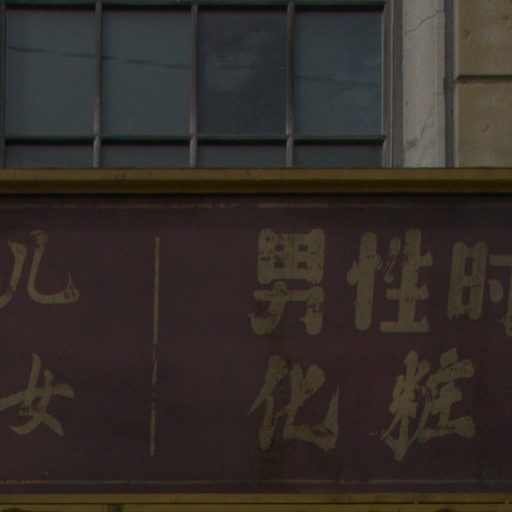 儿
女
男性时
化粧